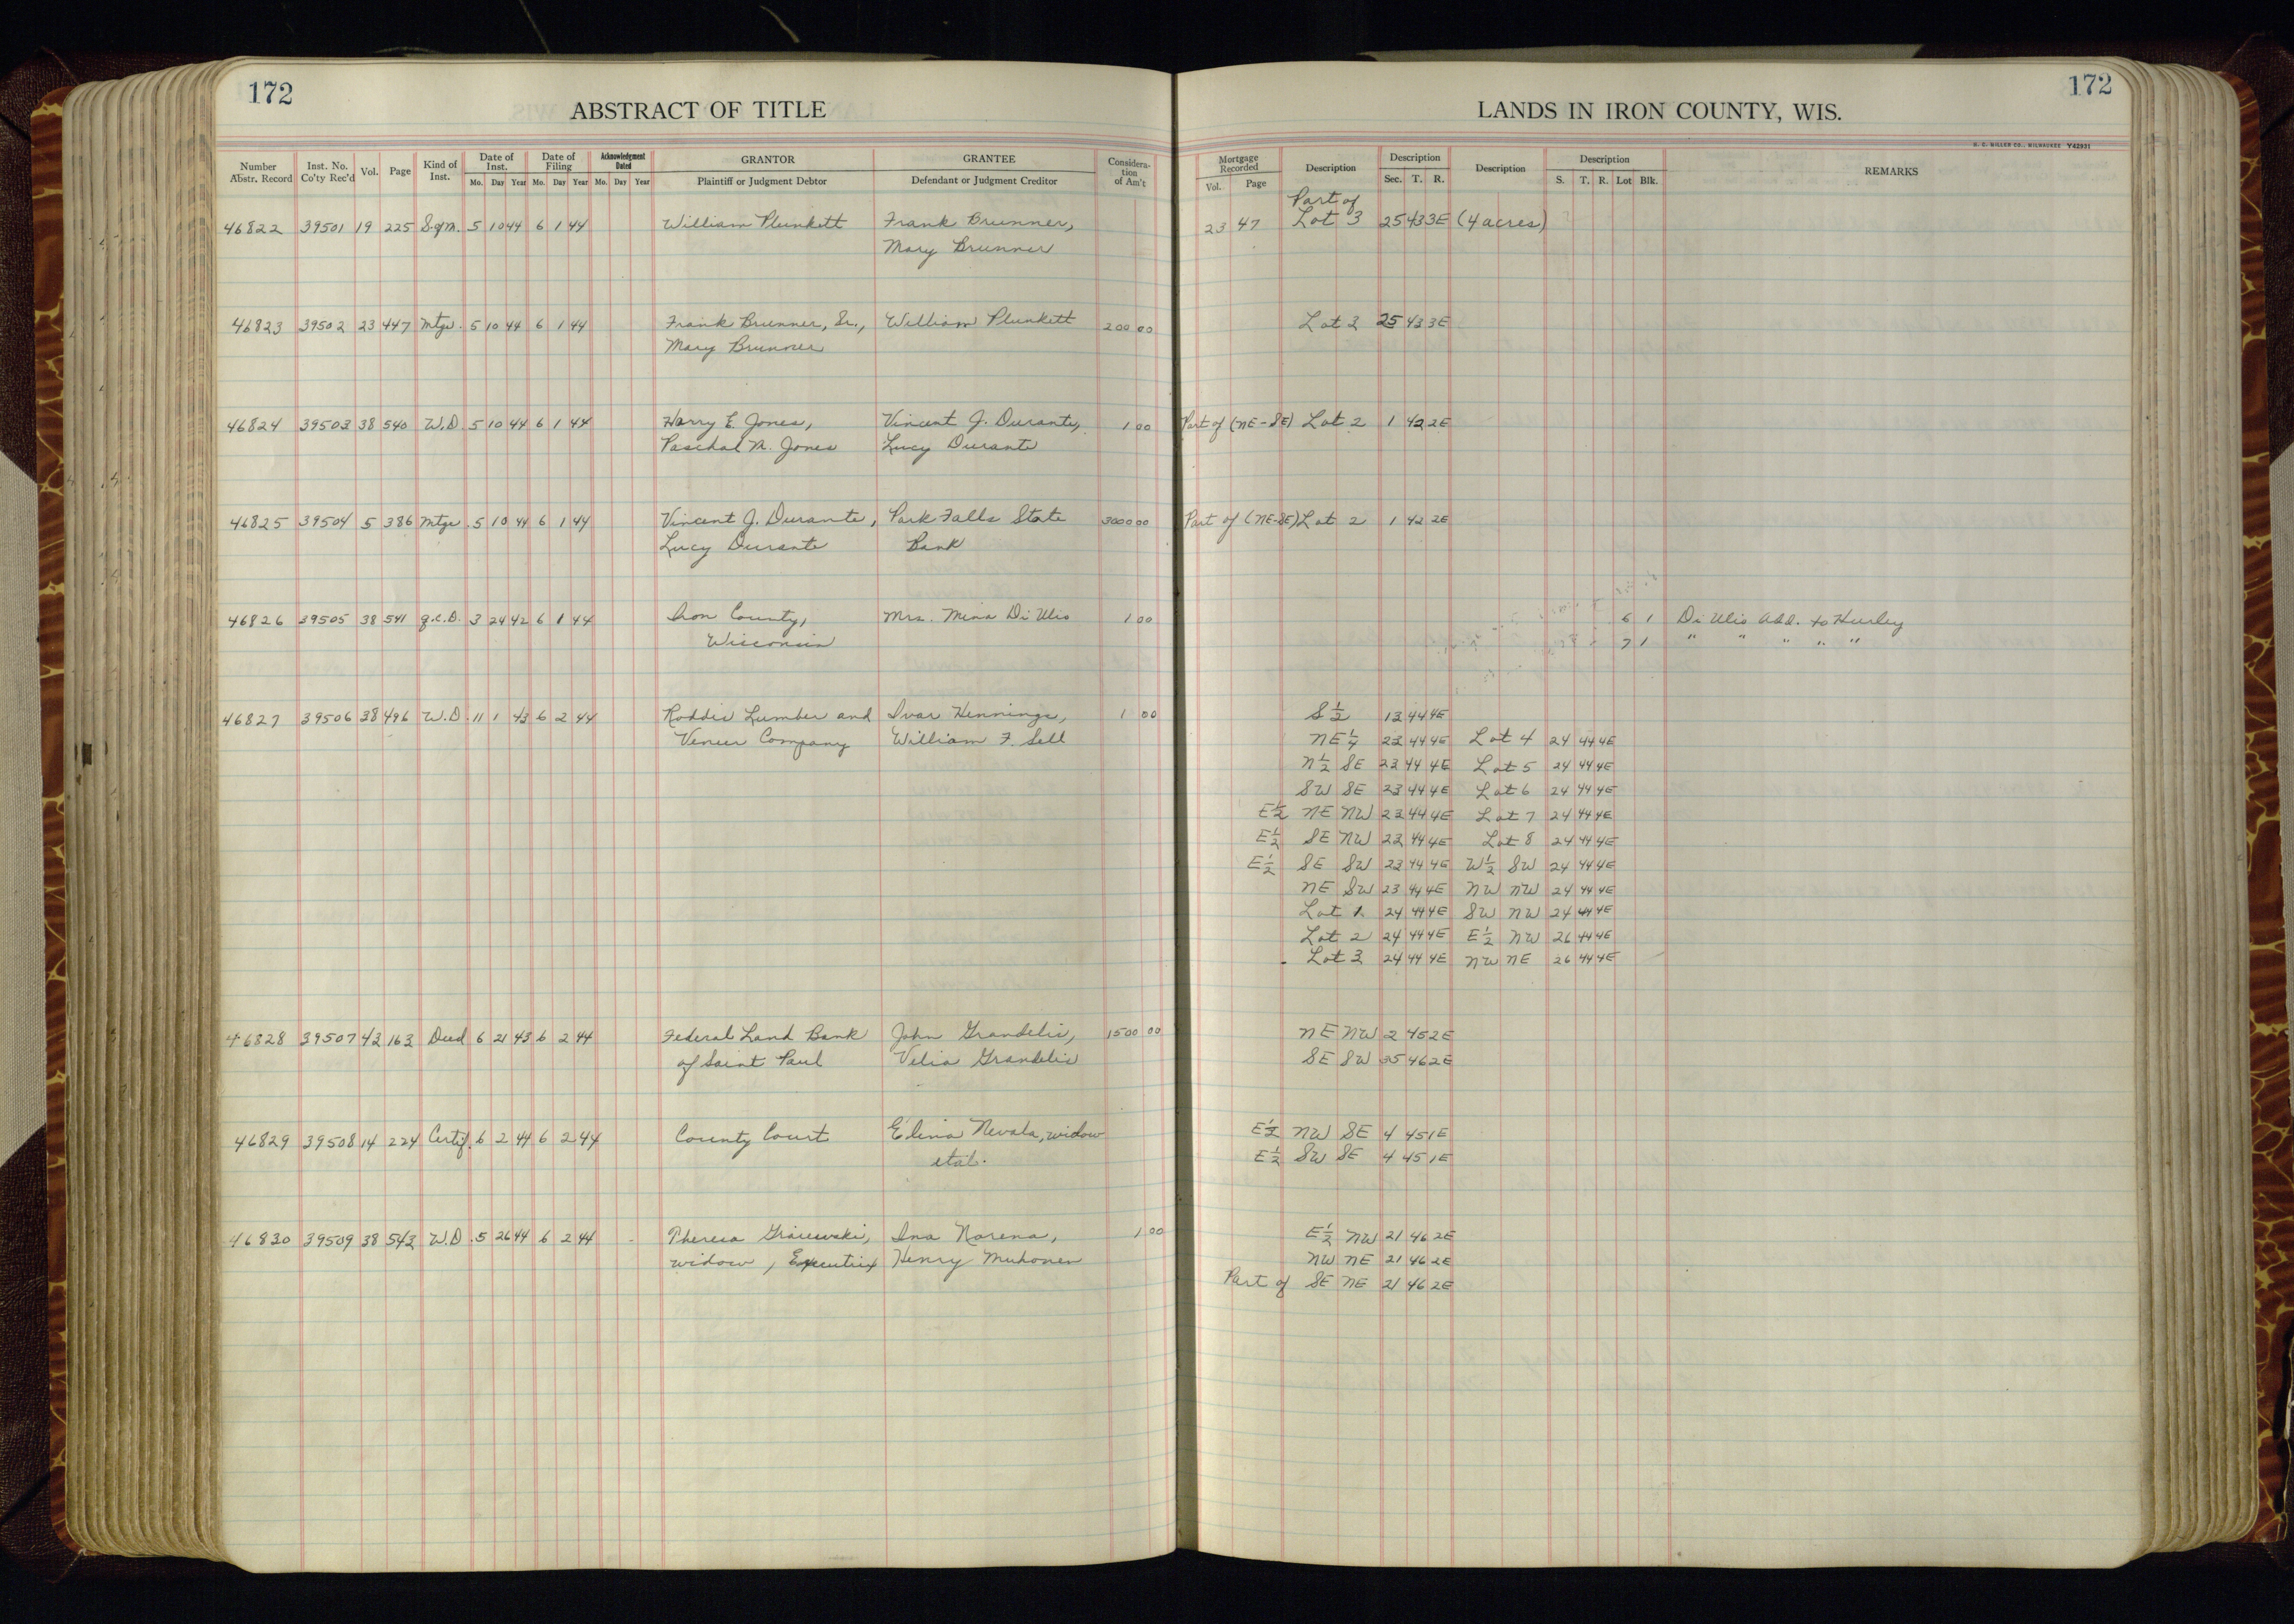 172
ABSTRACT OF TITLE
Number Abstr. Record Inst. No. Co'ty Rec'd Vol. Page Kind of Inst. Date of Inst. Mo. Day Year Date of Filing Mo. Day Year Acknowledgment Dated Mo. Day Year GRANTOR Plaintiff or Judgment Debtor GRANTEE Defendant or Judgment Creditor Consideration of Am't
46822 39501 19 225 S.ofM. 5 10 44 6 1 44 William Plunkett Frank Brunner,
Mary Brunner
46823 39502 23 447 Mtge. 5 10 44 6 1 44 Frank Brunner, Sr., William Plunkett 200 00
Mary Brunner
46824 39503 38 540 W.D. 5 10 44 6 1 44 Harry E. Jones, Vincent J. Durante, 1 00
Paschal N. Jones Lucy Durante
46825 39504 5 386 Mtge. 5 10 44 6 1 44 Vincent J. Durante, Park Falls State 3000 00
Lucy Durante Bank
46826 39505 38 541 Q.C.D. 3 24 42 6 1 44 Iron County, Mrs. Mina Di Ulio 1 00
Wisconsin
46827 39506 38 496 W.D. 11 1 43 6 2 44 Roddis Lumber and Ivar Hennings, 1 00
Veneer Company William F. Sell
46828 39507 43 163 Deed 6 21 43 6 2 44 Federal Land Bank John Grandelis, 1500 00
of Saint Paul Velia Grandelis
46829 39508 14 224 Certif. 6 2 44 6 2 44 County Court Elina Nevala, widow
etal.
46830 39509 38 543 W.D. 5 26 44 6 2 44 Theresa widow, Executrix Ina Norena, 1 00
Henry Muhonen
172
LANDS IN IRON COUNTY, WIS.
H. E. MILLER CO., MILWAUKEE Y42931
Mortgage Recorded Vol. Page Description Description Sec. T. R. Description Description S. T. R. Lot Blk. REMARKS
Part of
23 47 Lot 3 25 43 3E (4 acres)
Lot 3 25 43 3E
Part of (NE-SE) Lot 2 1 42 2E
Part of (NE-SE) Lot 2 1 42 2E
6 1 Di Ulio Add. to Hurley
7 1 " " " " "
S 1/2 13 44 4E
NE 1/4 23 44 4E Lot 4 24 44 4E
N 1/2 SE 23 44 4E Lot 5 24 44 4E
SW SE 23 44 4E Lot 6 24 44 4E
E 1/2 NE NW 23 44 4E Lot 7 24 44 4E
E 1/2 SE NW 23 44 4E Lot 8 24 44 4E
E 1/2 SE SW 23 44 4E W 1/2 SW 24 44 4E
NE SW 23 44 4E NW NW 24 44 4E
Lot 1 24 44 4E SW NW 24 44 4E
Lot 2 24 44 4E E 1/2 NW 26 44 4E
Lot 3 24 44 4E NW NE 26 44 4E
NE NW 2 45 2E
SE SW 35 46 2E
E 1/2 NW SE 4 45 1E
E 1/2 SW SE 4 45 1E
E 1/2 NW 21 46 2E
NW NE 21 46 2E
Part of SE NE 21 46 2E